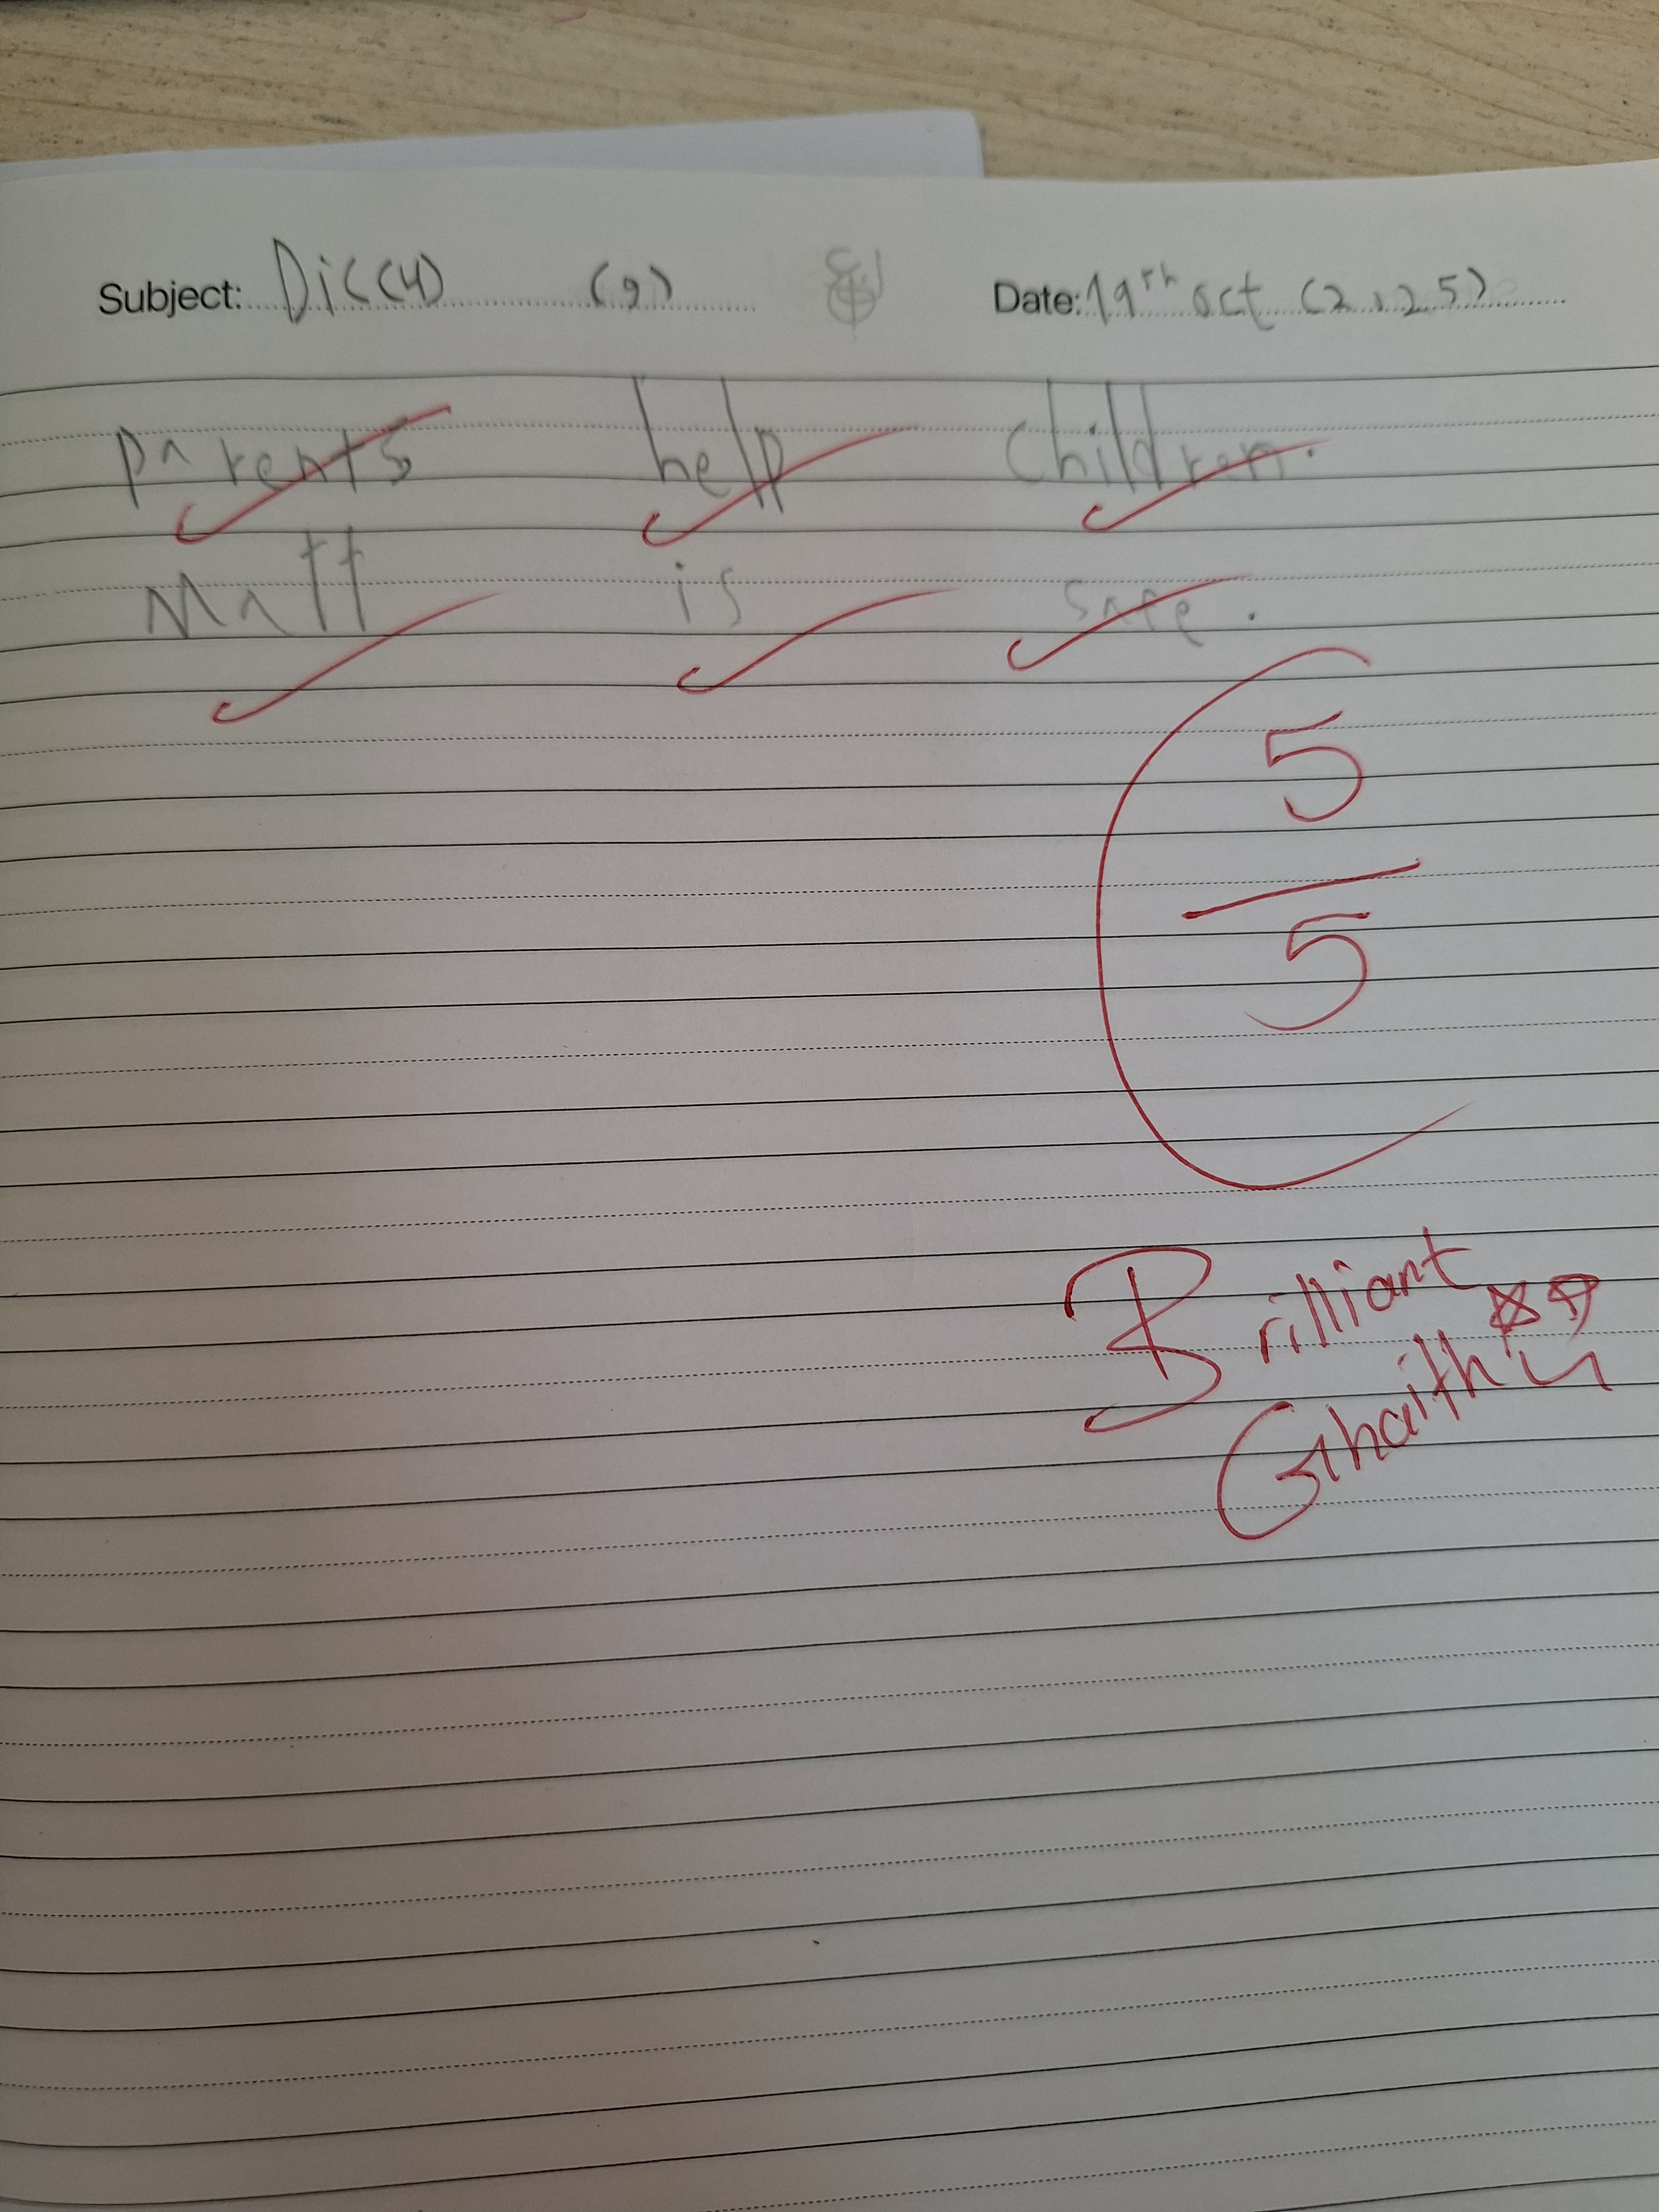 Subject: Dic(4) (9) Date: 19th oct (2025)
parents help children.
Matt is safe.
5
5
Brilliant
Ghaith